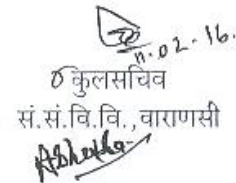 11.02.16.
कुलसचिव
सं.सं.वि.वि.,वाराणसी